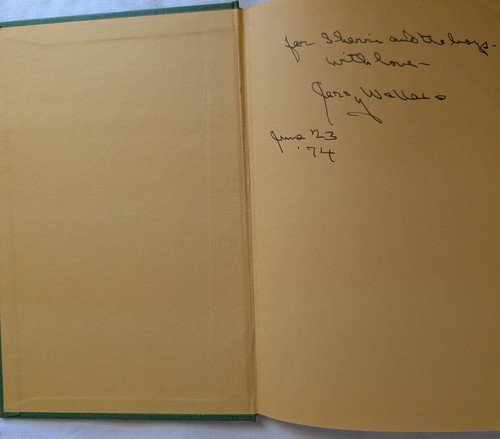 for Sherrie and the boys-
with love-
Jerry Wallace
June '23
'74